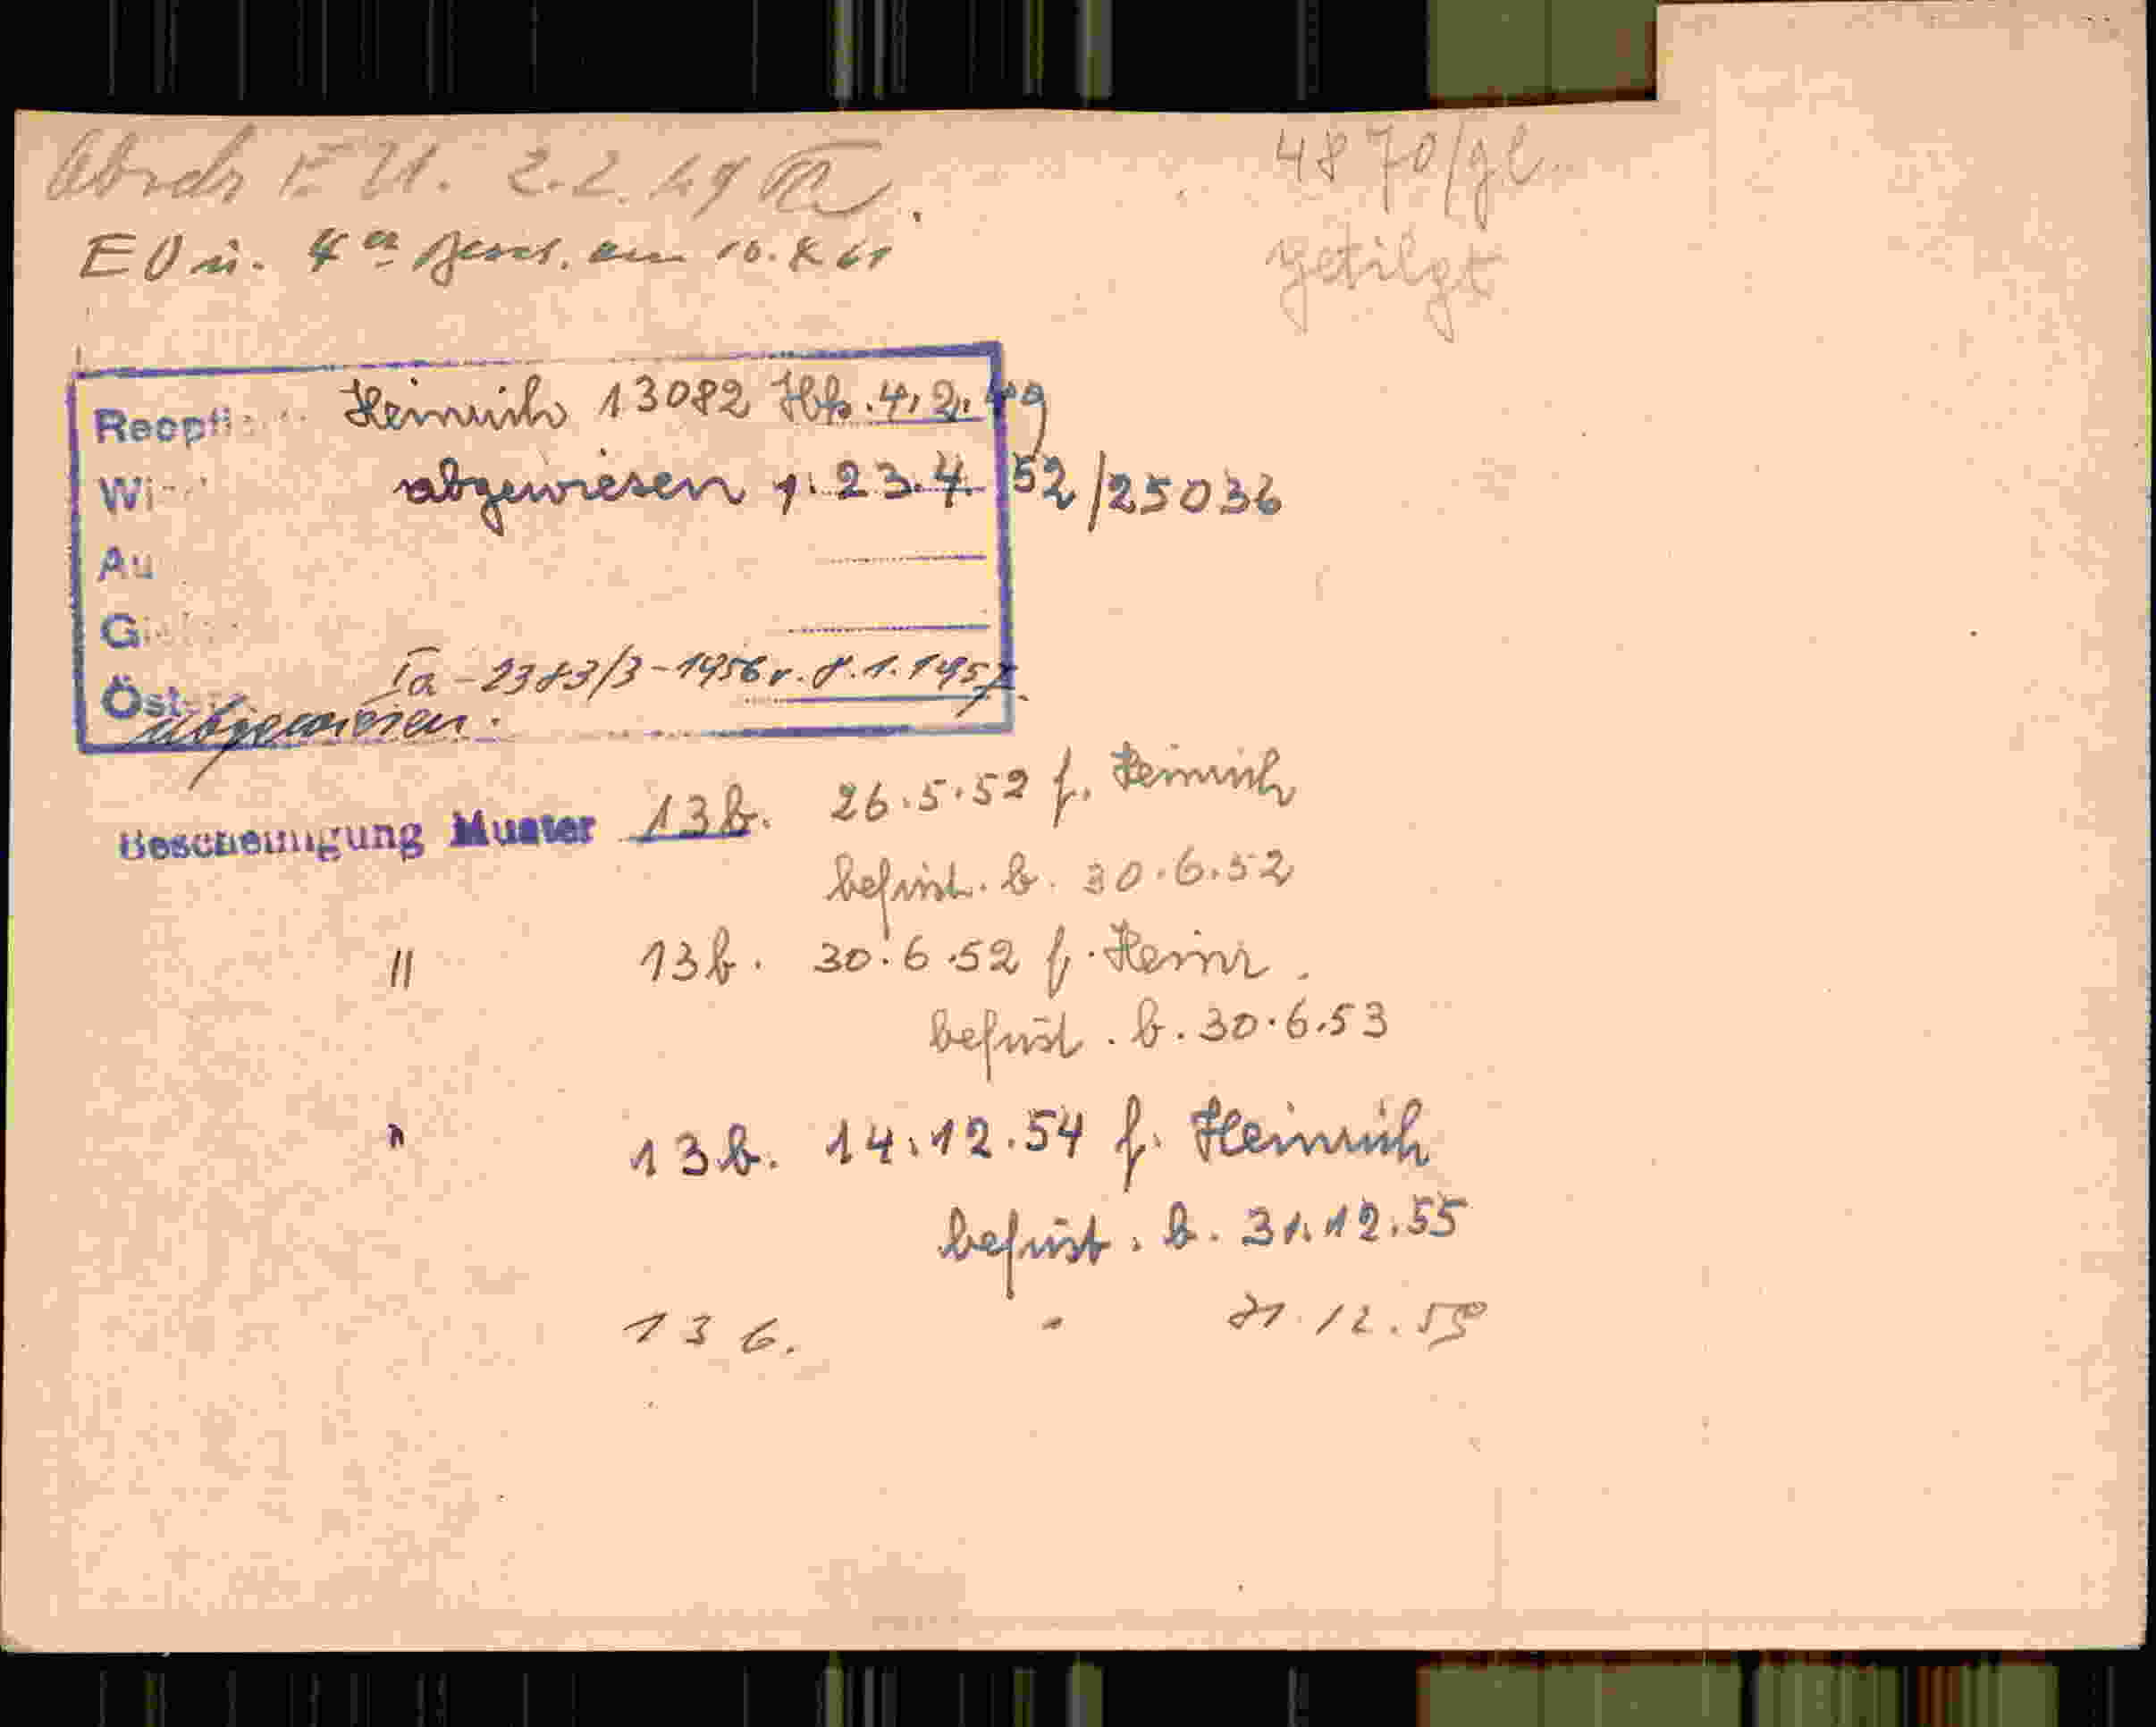 E U. 2.2.49
4870/gl.
E U ü. 4 am 10.X 61
getilgt
Heinrich 13082 Hfb. 4.2.49
abgewiesen p. 23.4.52/25036
Au
Ia-2383/3-1956 v. 8.1.1957.
Öst
abgewiesen.
Bescheinigung Muster 13b. 26.5.52 f. Heinrich
befrist. b. 30.6.52
" 13b. 30.6.52 f. Heinr.
befrist. b. 30.6.53
" 13b. 14.12.54 f. Heinrich
befrist. b. 31.12.55
13b. " 31.12.59